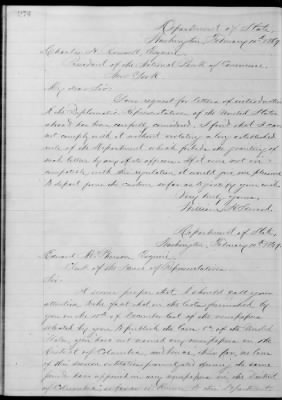 Department of State,
Washington, February 10th 1869.
Charles H. Russell, Esquire,
President of the National Bank of Commerce
New York
My dear Sir:
Your request for letters of introduction
to the Diplomatic Representatives of the United States
abroad has been carefully considered. I find that I can
not comply with it without violating a long established
rule of the Department which forbids the granting of
such letters by any of its officers. If it were not in-
compatible with this regulation it would give me pleasure
to depart from the custom so far as to
Very truly yours,
William H. Seward.
Department of State,
Washington, February 10th 1869.
Edward McPherson Esquire,
Clerk of the House of Representatives.
Sir:
It seems proper that I should call your
attention to the fact that in the list furnished by
you on the 10th of December last of the newspapers
selected by you to publish the laws of the United
States, you have not named any newspaper in the
District of Columbia, and
of the
have appeared in any newspaper in the District
of Columbia so far as is known to this Department